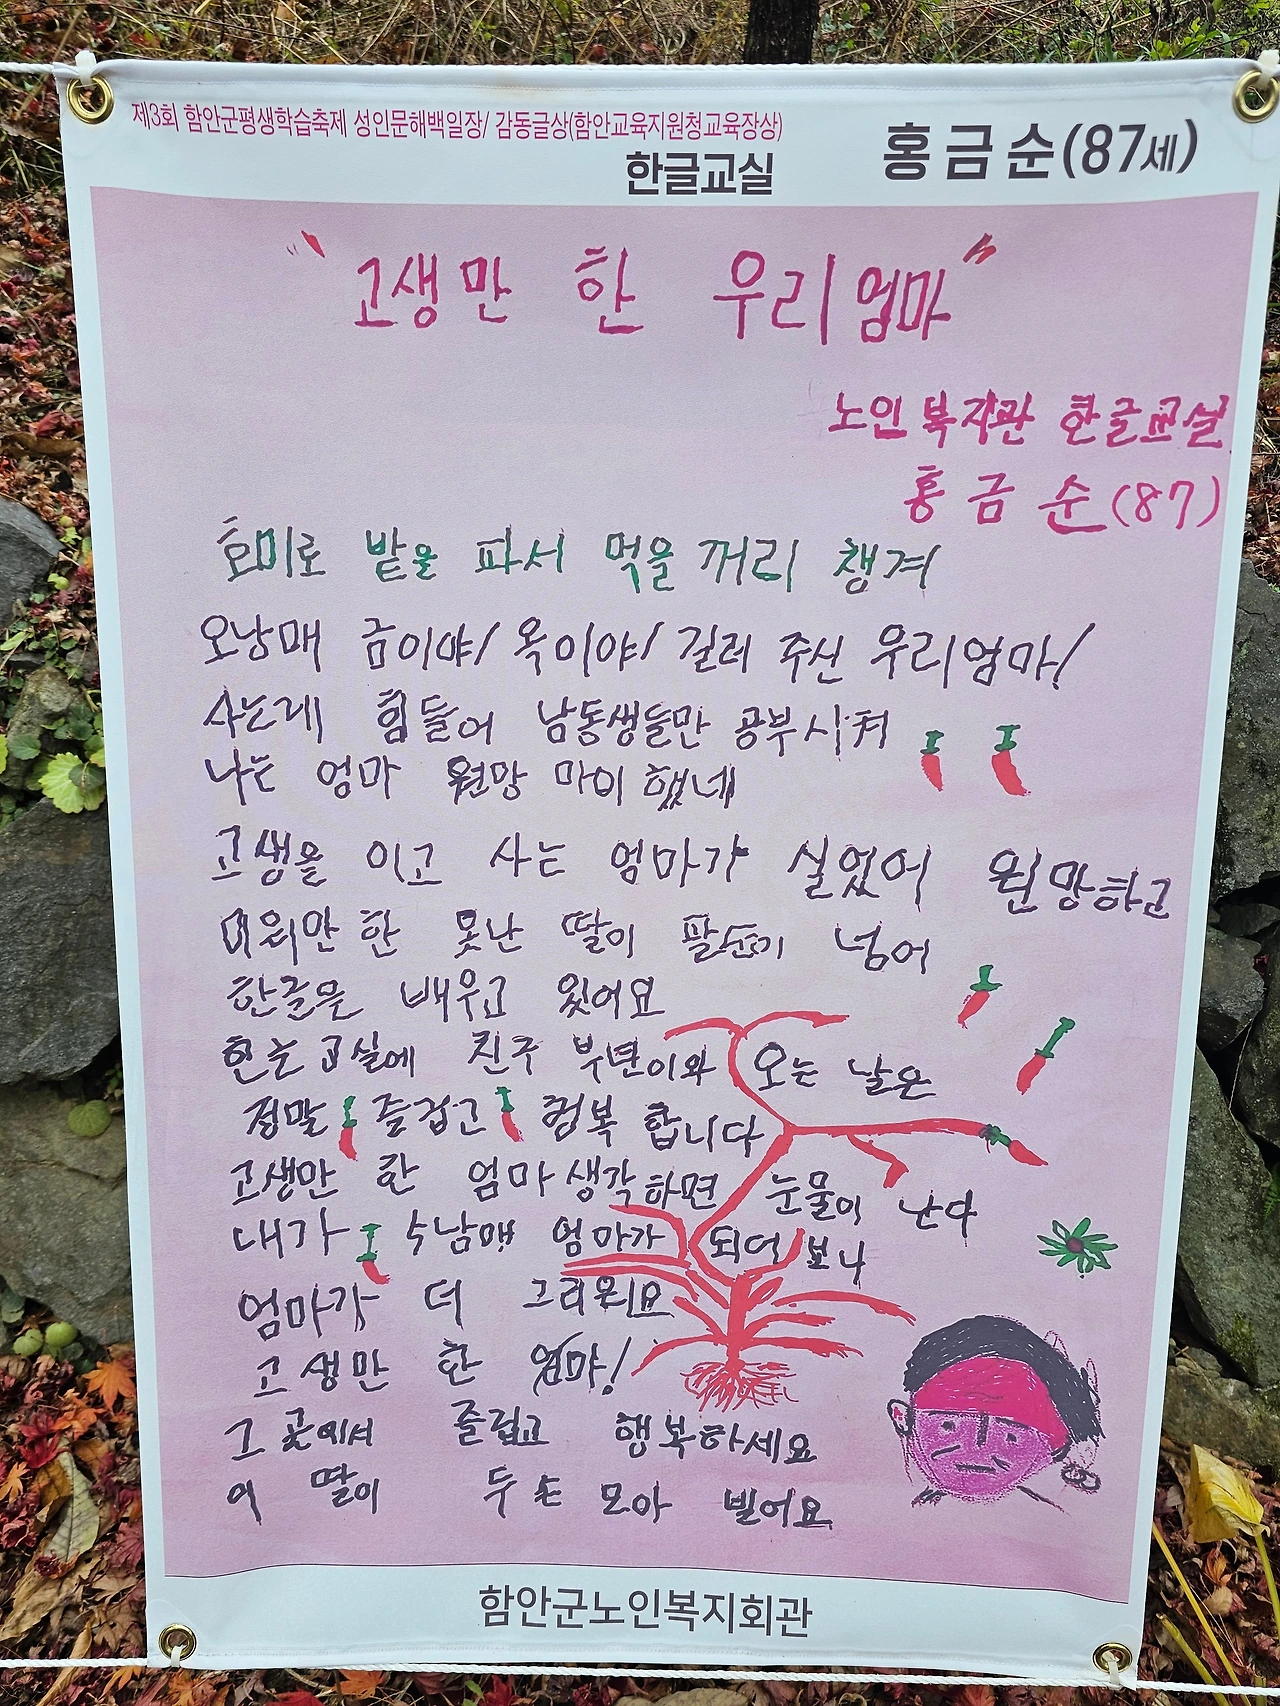 제3회 함안군평생학습축제 성인문해백일장/ 감동글상(함안교육지원청교육장상)
한글교실
홍금순(87세)
"고생만 한 우리엄마"
노인복지관 한글교실
홍금순(87)
호미로 밭을 파서 먹을 꺼리 챙겨
오남매 금이야/ 옥이야/ 길러 주신 우리엄마!
사는게 힘들어 남동생들만 공부시켜
나는 엄마 원망 마이 했네
고생을 이고 사는 엄마가 실었어 원망하고
미워만 한 못난 딸이 팔순이 넘어
한글을 배우고 있어요
한글 교실에 친구 부년이와 오는 날은
정말 즐겁고 헝복 합니다
고생만 한 엄마생각하면 눈물이 난다
내가 수남매 엄마가 되어 보니
엄마가 더 그리워요
고생만 한 엄마!
그 곳에서 즐겁고 행복하세요
이 딸이 두 손 모아 빌어요
함안군노인복지회관